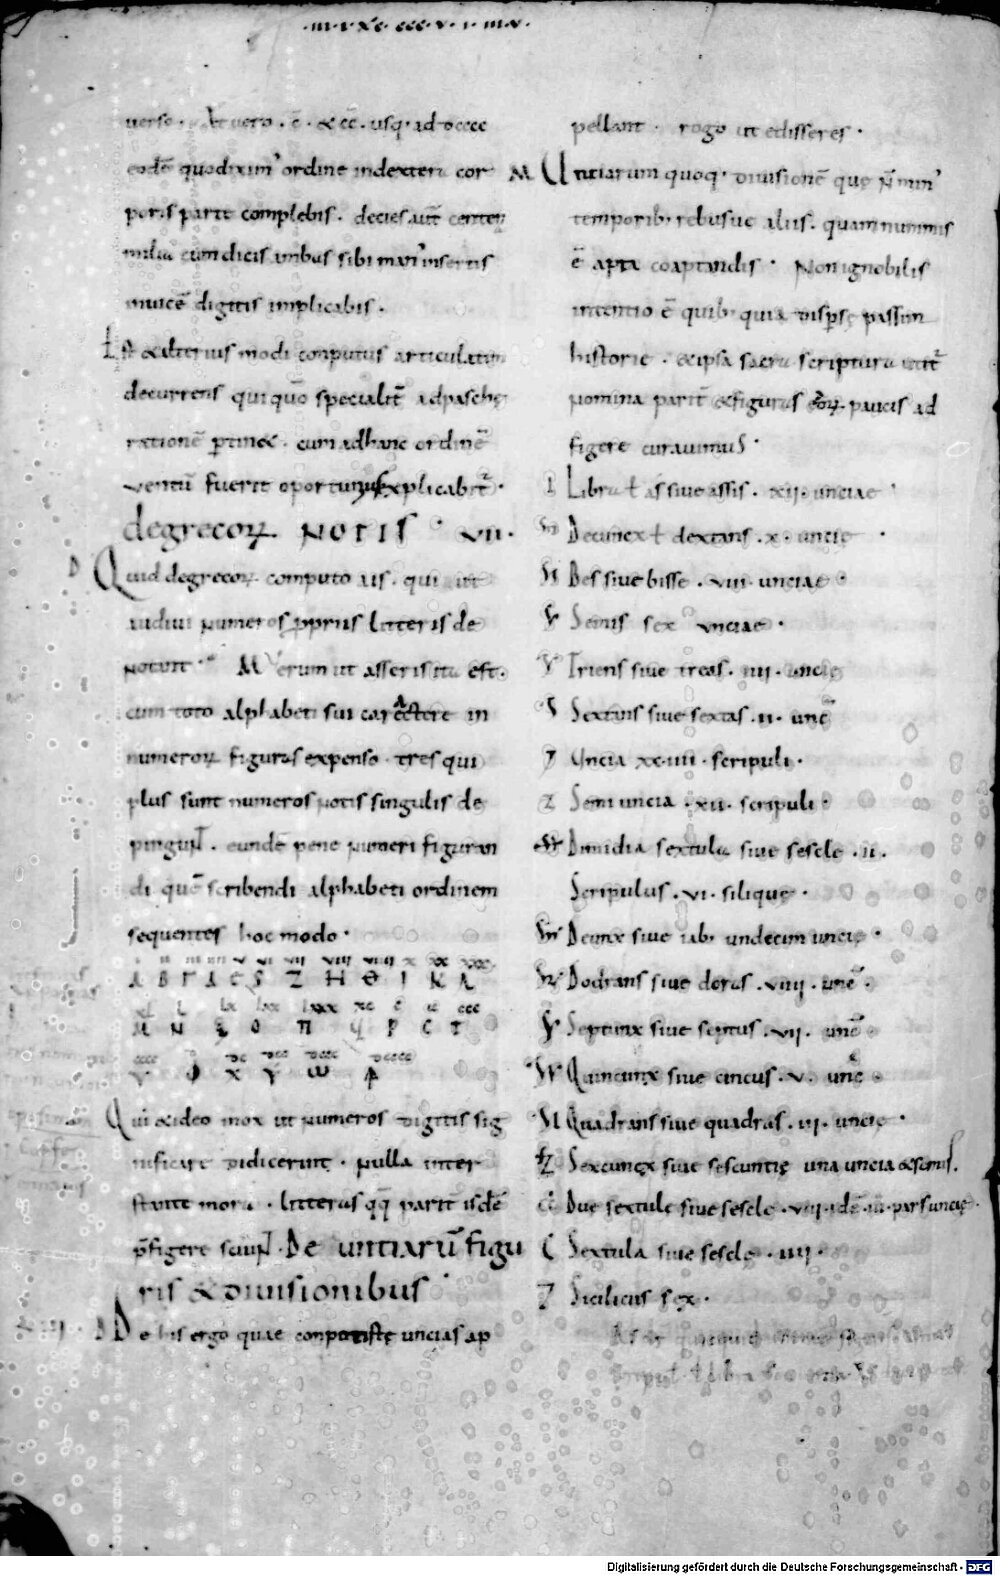 uerso. At uero .c̄. & cc̄. usq; ad dcccc
eodē quo diximꝰ ordine in dextera cor
poris parte complebis. decies aūt centen
milia cum dicis ambas sibi manꝰ insertis
inuicē digitis implicabis.
Est & alterius modi conputus articulatim
decurrens qui quō specialit̄ ad paschę
rationē ꝑtinet. cum ad hanc ordinē
uentū fuerit oportunius explicabit̄.
de grecoꝝ NOTIS VII.
D Quid de grecoꝝ computo ais. qui ut
audiui numeros ꝓpriis litteris de
notant. M Verum ut asseris ita est.
cum toto alphabeti sui carectere in
numeroꝝ figuras expenso tres qui
plus sunt numeros notis singulis de
pingunt. eundē pene numeri figuran
di quē scribendi alphabeti ordinem
sequentes hoc modo.
V VI VII VIII VIIII X XX XXX
A B Γ Δ Є S Z H Θ I K Λ
XL L LX LXX LXXX XC C CC CCC
M N O Π Ϥ P C T
CCCC D DC DCC DCCC DCCCC
Y Φ X Ψ Ѡ
Qui & ideo mox ut numeros digitis sig
nificare didicerint. nulla inter
stante mora. litteras qq̄ parit̄ isdē
p̄figere sciunt. De untiarū figu
ris & diuisionibus
D De his ergo quae conpotistę uncias ap
pellant. rogo ut edisseres.
M Untiarum quoq; diuisionē quę n̄ minꝰ
temporib; rebusue aliis. quam nummis
ē apta coaptandis. Non ignobilis
intentio ē quib; quia disp̄sę passim
historie. & ipsa sacra scriptura utit̄
nomina parit̄ & figuras eoꝝ paucis ad
figere curauimus.
Libra ł as siue assis. xii. unciae
Decunex ł dextans. x. uncię.
Bes siue bisse. viii. unciae.
Semis sex unciae.
Triens siue treas. iiii. uncię
Sextans siue sextas. ii. unc̄
Uncia xx.iiii. scripuli.
Semiuncia .xii. scripuli.
Dimidia sextula siue sescle .ii.
Scripulus. vi. silique.
Deunx siue iab; undecim uncię.
Dodrans siue doras. viiii. unc̄.
Septunx siue septus. vii. unc̄.
Quincunx siue cincus. v. unc̄.
Quadrans siue quadras. iii. uncię.
Sexcunęx siue sescuntię una uncia & semis.
Due sextulę siue sescle. viii. idē. iii. pars uncię.
Sextula siue sescle. iiii.
Sicilicus sex.